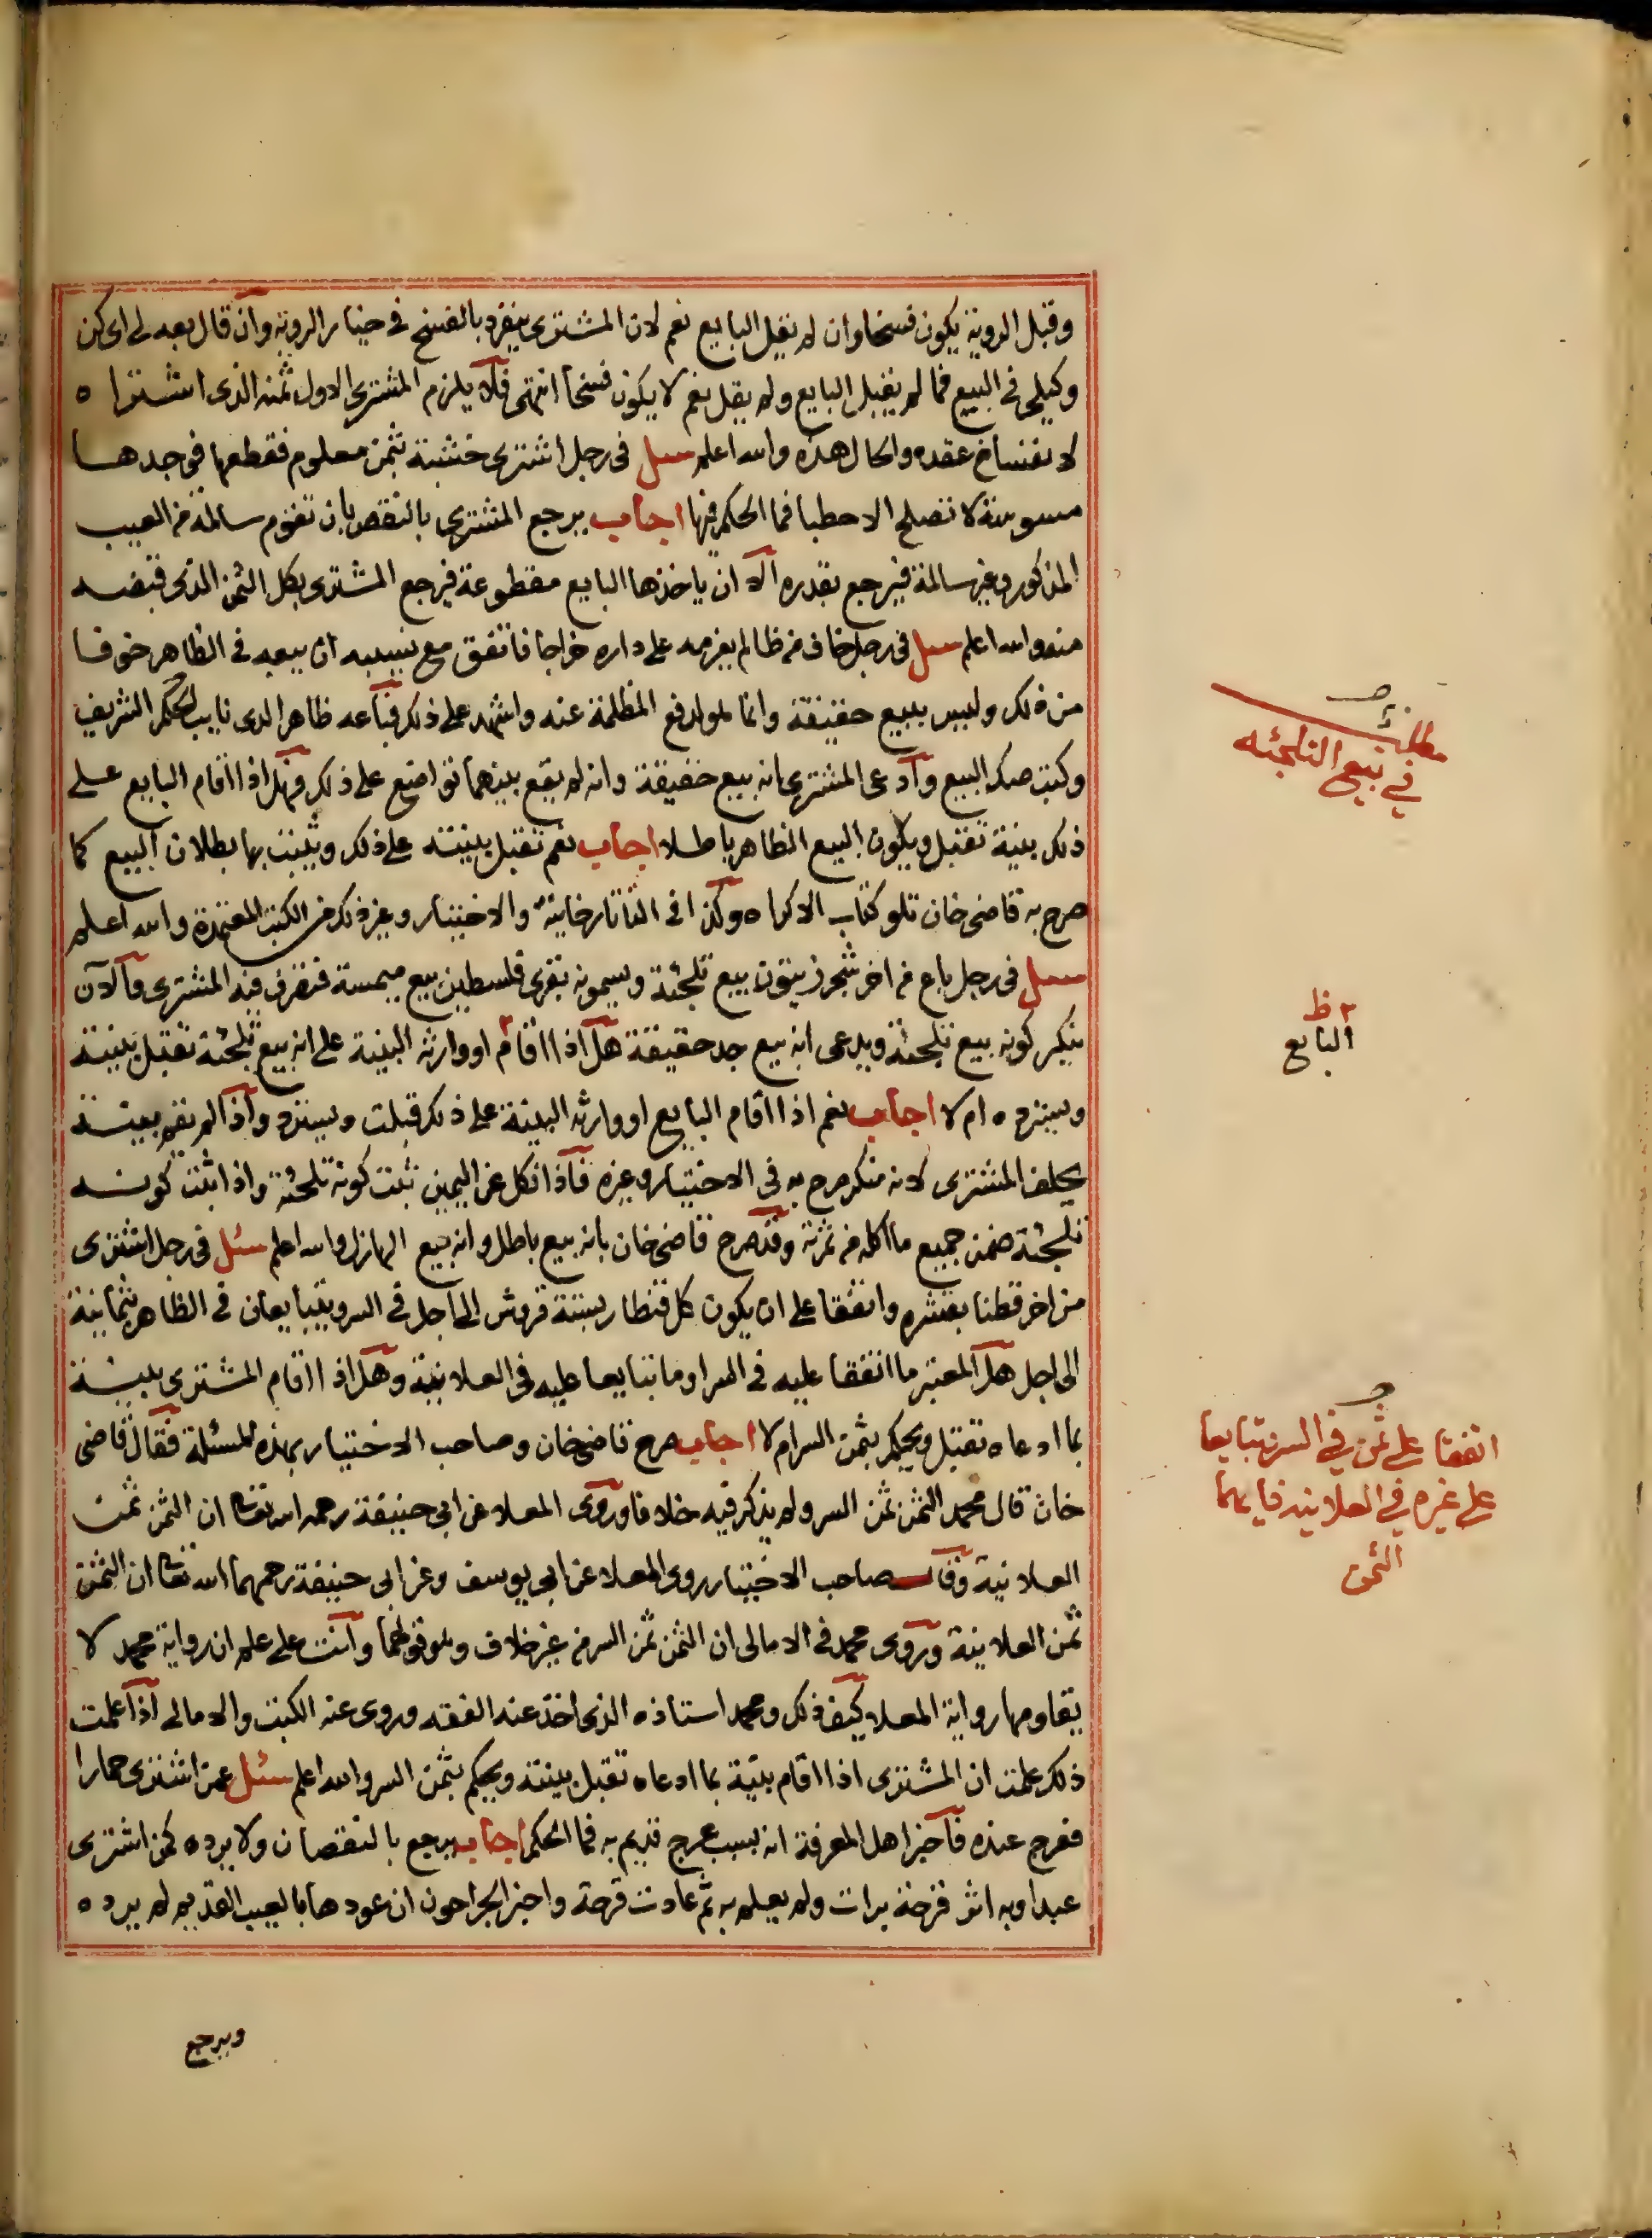 وقبل الروية يكون فسخا وان لم يقل البايع نعم لان المشترى ينفرد بالفسخ فى خيار الروية وان قال بعه لى اى كن
وكيلى فى البيع فما لم يقبل البايع ولم يقل نعم لا يكون فسخا انتهى فلا يلزم المشترى الاول ثمنه الذى اشتراه
لانفساخ عقده والحال هذه والله اعلم سئل فى رجل اشترى خشبة بثمن معلوم فقطعها فوجدها
مسوسة لا تصلح الا حطبا فما الحكم فيها اجاب يرجع المشترى بالنقص بان تقوم سالمة من العيب
المذكور وغير سالمة فيرجع بقدره الا ان ياخذها البايع مقطوعة فيرجع المشترى بكل الثمن الذى قبضه
منه والله اعلم سئل فى رجل خاف من ظالم يغرمه على داره خراجا فاتفق مع نسيبه ان يبيعه فى الظاهر خوفا
من ذلك وليس ببيع حقيقة وانما هو لدفع المظلمة عنه واشهد على ذلك فباعه ظاهرا لدى نايب الحكم الشريف
وكتب صك البيع وادعى المشترى انه بيع حقيقة وانه لم يقع بينهما تواضع على ذلك فهل اذا اقام البايع على
ذلك بينة تقبل ويكون البيع الظاهر باطلا اجاب نعم تقبل بينته على ذلك ويثبت بها بطلان البيع كما
صرح به قاضى خان تلو كتاب الاكراه وكذا فى التاتارخانية والاختيار وغير ذلك من الكتب المعتمدة والله اعلم
سئل فى رجل باع من اخر شجر زيتون بيع تلجئة ويسمونه بقرى فلسطين بيع ميمسة فتصرف فيه المشترى والان
ينكر كونه بيع تلجئة ويدعى انه بيع جد حقيقة هل اذا اقام او وارثه البينة على انه بيع تلجئة تقبل بينته
ويسترده ام لا اجاب نعم اذا اقام البايع او وارثه البينة على ذلك قبلت ويسترد واذا لم تقم بينة
يحلف المشترى لانه منكر صرح به فى الاختيار وغيره فاذا نكل عن اليمين ثبت كونه تلجئة واذا ثبت كونه
تلجئة ضمن جميع ما اكله من ثمرته وقد صرح قاضى خان بانه بيع باطل وانه بيع الهازل والله اعلم سئل فى رجل اشترى
من اخر قطنا بقشره واتفقا على ان يكون كل قنطار بستة قروش الى اجل فى السر ويتبايعان فى الظاهر بثمانية
الى اجل هل المعتبر ما اتفقا عليه فى السر او ما تبايعا عليه فى العلانية وهل اذا اقام المشترى بينة
بما ادعاه تقبل ويحكم بثمن السر ام لا اجاب صرح قاضى خان وصاحب الاختيار بهذه المسئلة فقال قاضى
خان قال محمد الثمن ثمن السر ولم يذكر فيه خلافا وروى المعلا عن ابى حنيفة رحمه الله تعالى ان الثمن ثمن
العلانية وقال صاحب الاختيار روى المعلا عن ابى يوسف وعن ابى حنيفة رحمهما الله تعالى ان الثمن
ثمن العلانية وروى محمد فى الامالى ان الثمن ثمن السر من غير خلاف وهو قولهما وانت على علم ان رواية محمد لا
يقاومها رواية المعلا كيف ذلك ومحمد استاذه الذى اخذ عنه الفقه وروى عنه الكتب والامالى اذا علمت
ذلك علمت ان المشترى اذا اقام بينة بما ادعاه تقبل بينته ويحكم بثمن السر والله اعلم سئل عمن اشترى حمارا
فعرج عنده فاخبر اهل المعرفة انه بسبب عرج قديم به فما الحكم اجاب يرجع بالنقصان ولا يرده كمن اشترى
عبدا وبه اثر قرحة برات ولم يعلم به ثم عادت قرحة واخبر الجراحون ان عودها بالعيب القديم لم يرده
ويرجع
مطلب
في بيع التلجئه
ظ
البايع
اتفقا على ثمن في السر وتبايعا
على غيره في العلانيه فايهما
الثمن